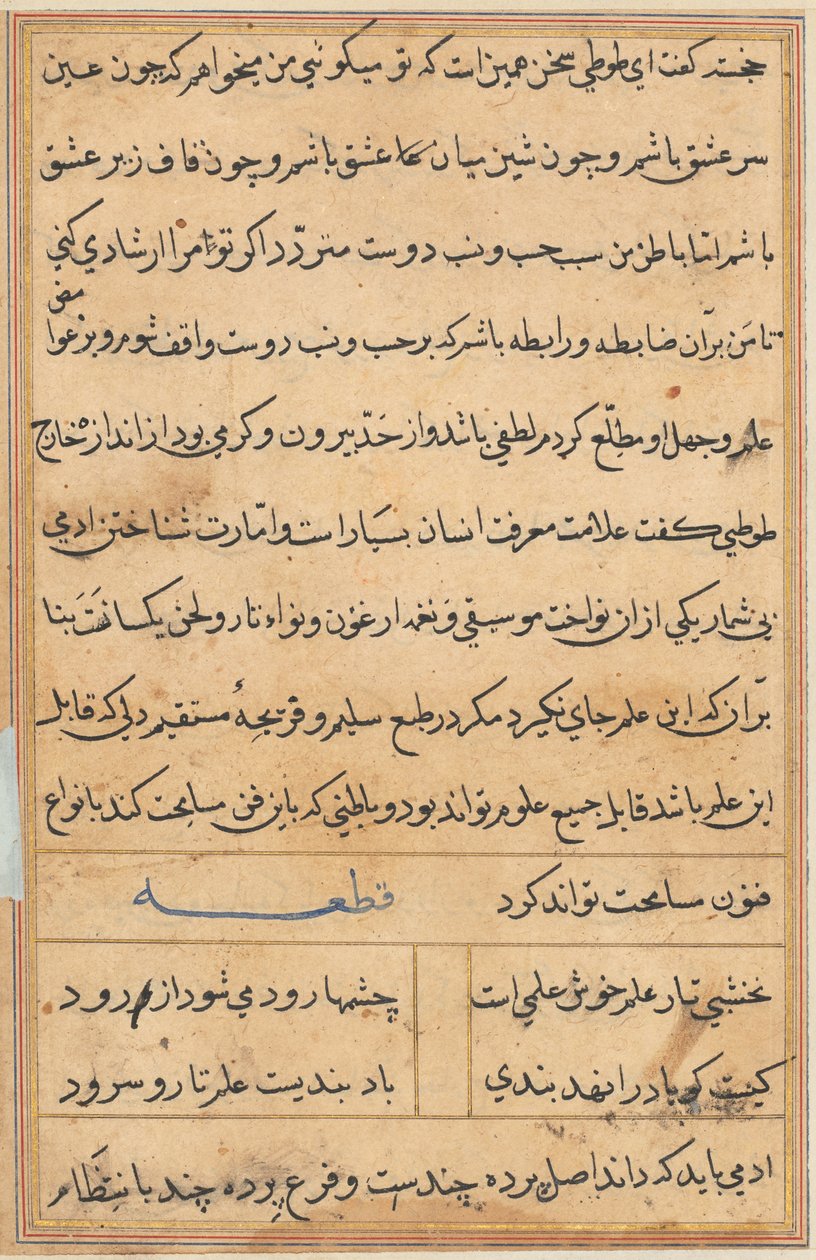 خجسته كفت اي طوطي سخن همين است كه تو ميكوئي من ميخواهم كه چون عين
سر عشق باشم و چون شين ميان عشق باشم و چون قاف زير عشق
باشم اما باطن من سبب حسب و نسب دوست متردّد اكر تو مرا ارشادي كني
تا مَن برآن ضابطه و رابطه باشم كه بر حسب و نسب دوست واقف شوم و بر
علم و جهل او مطلّع كردم لطفي باشد و از حَدّ بيرون و كرمي بود از اندازه خارج
طوطي كفت علامت معرفت انسان بسيَار است و امّارت شناختن ادمي
بي شمار يكي ازان نواخت موسيقي وَ نغمه ارغنون و نواء تار و لحن يكسانَت بنا
برّان كه اين علم جاي نكيرد مكر در طبع سليم و قريحهٔ مستقيم دلي كه قابل
اين علم باشد قابل جميع علوم تواند بود و باطني كه باين فن مسامحت كند بانواع
فنون مسامحت تواند كرد
قطعه
نخشبي تار علم خوش علمي است
چشمها رود مي شود از رود
كيست كو باد را نهد بندي
باد بنديست علم تار و سرود
ادمي بايد كه داند اصل پرده چندست و فرع پرده چند با نتظَام